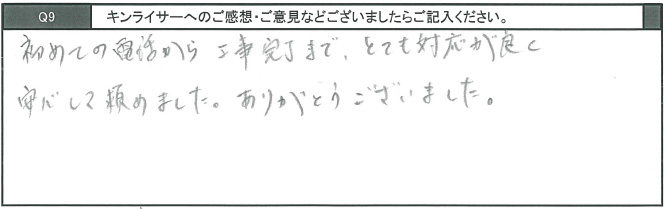 Q9 キンライサーへのご感想・ご意見などございましたらご記入ください。
初めての電話から工事完了まで、とても対応が良く
安心して頼めました。ありがとうございました。